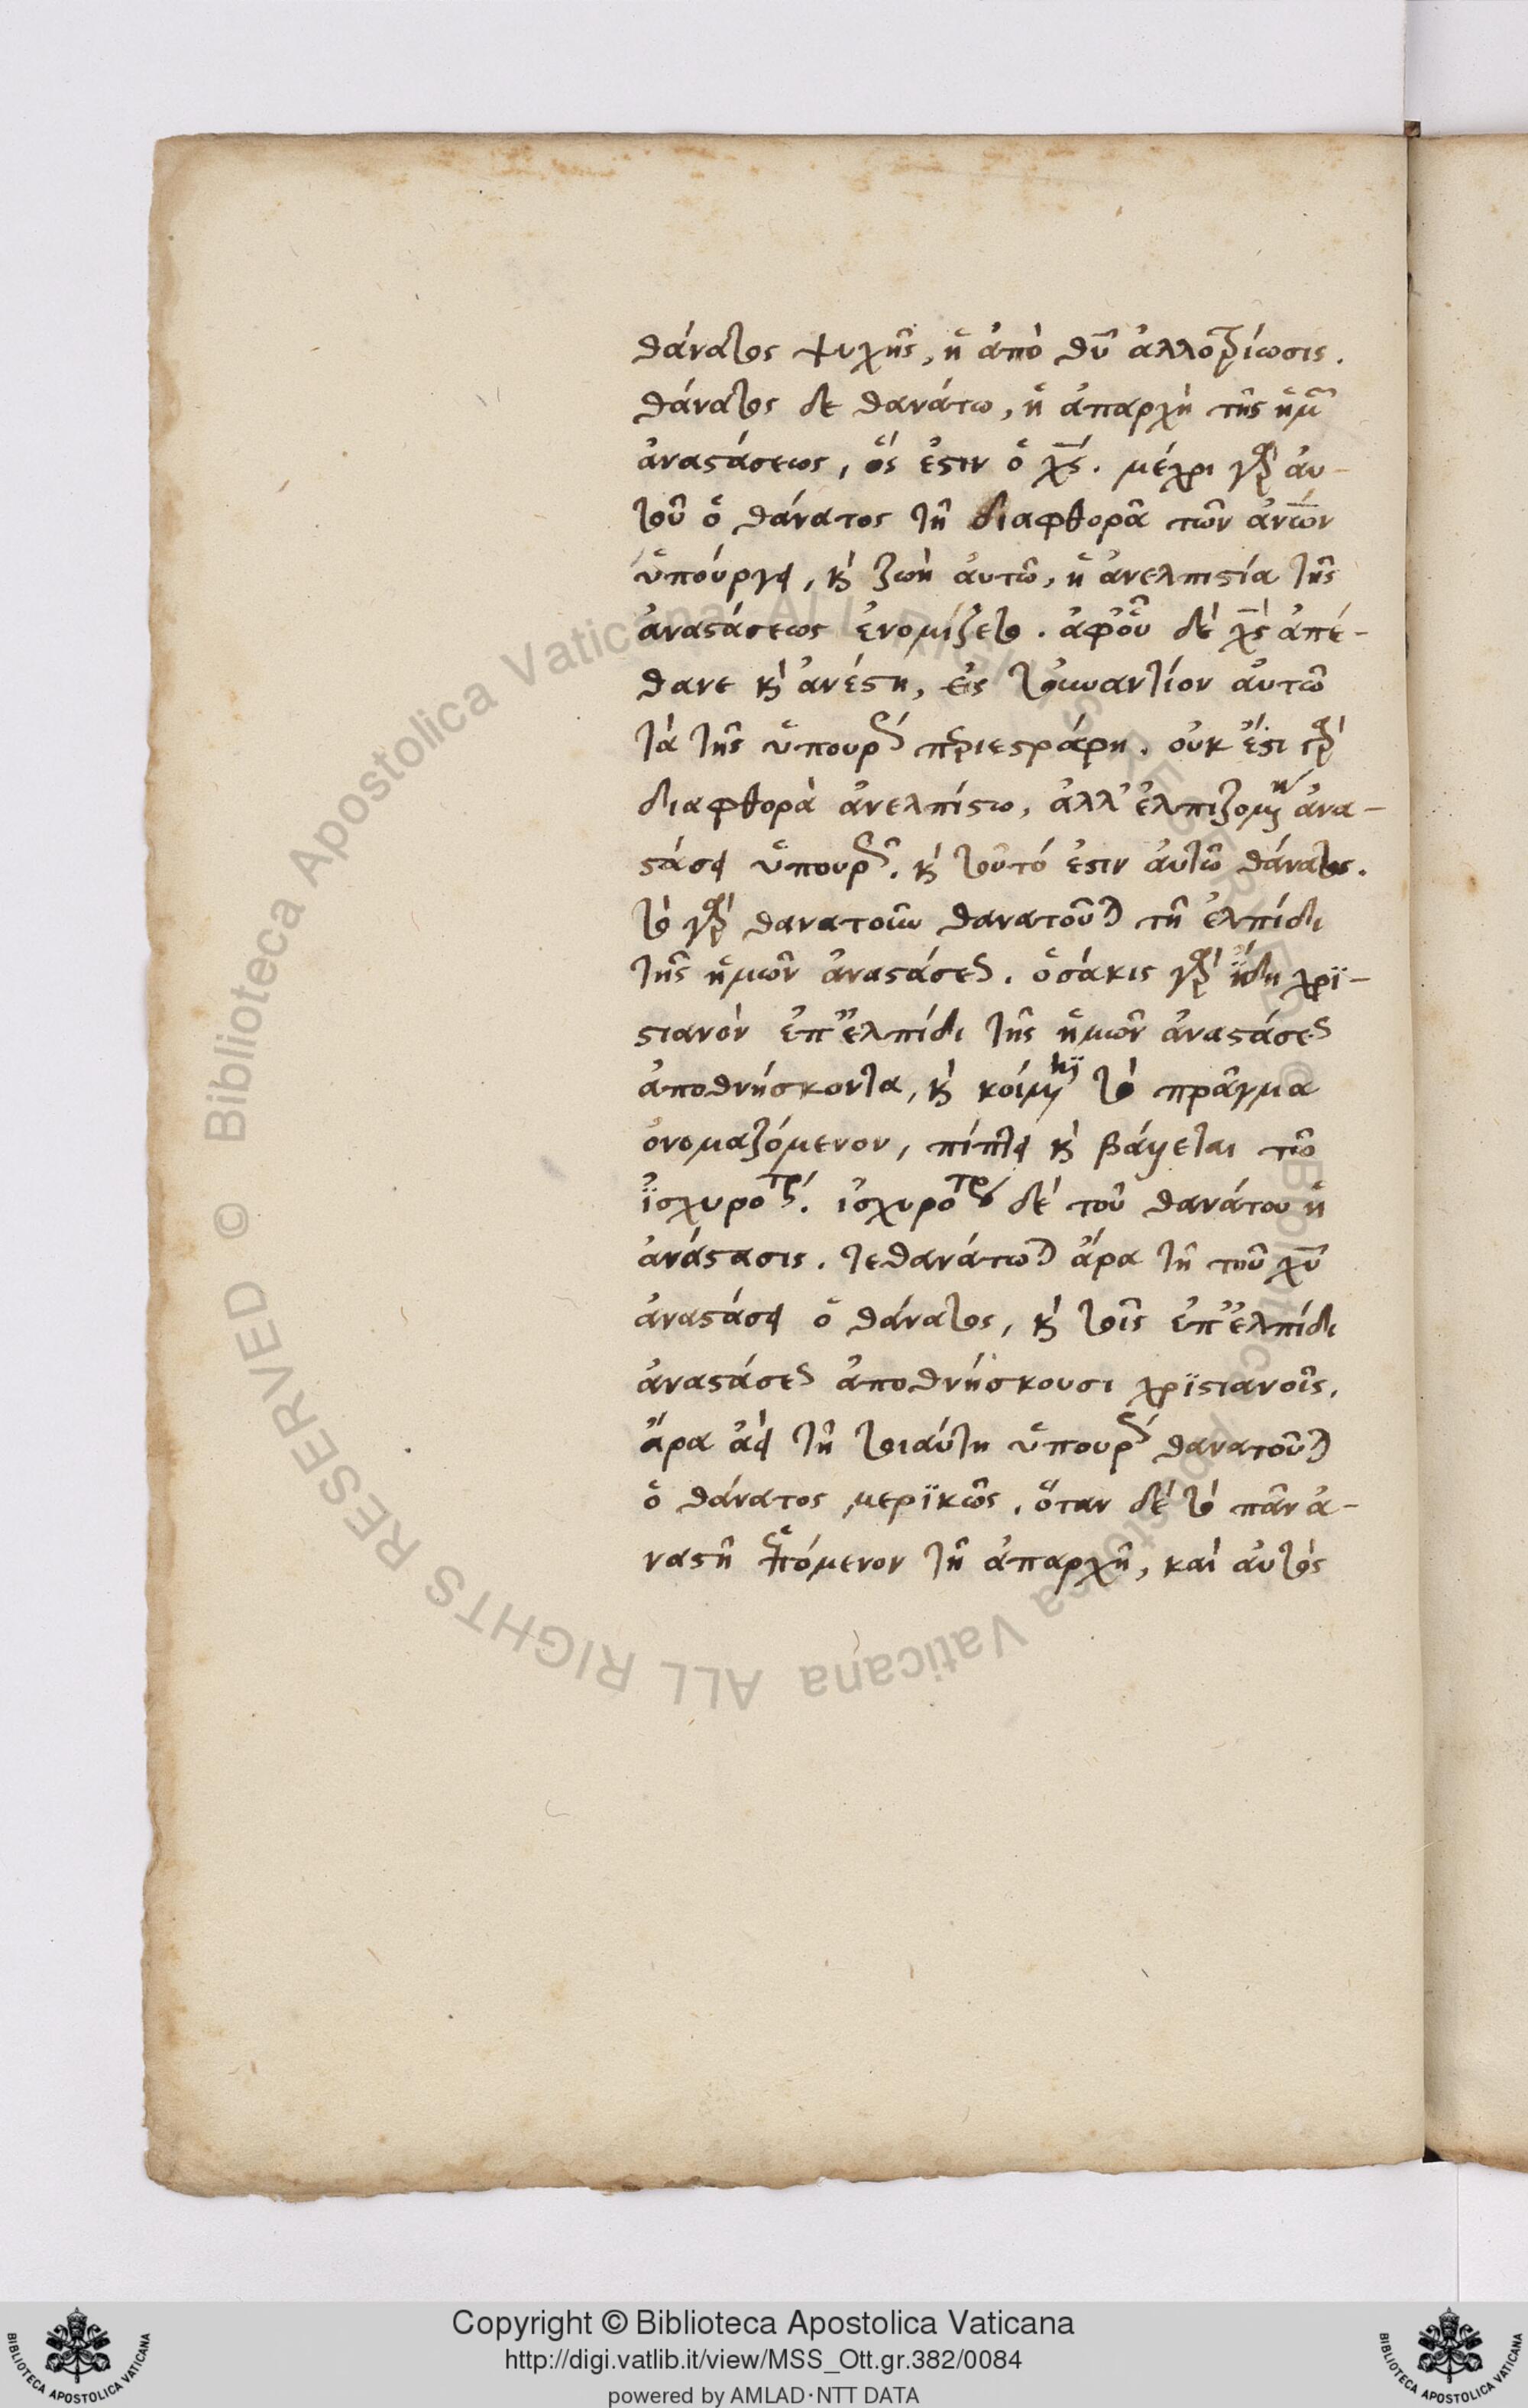 θάνατος ψυχῆς, ἡ ἀπὸ θῦ ἀλλοτρίωσις.
θάνατος δε θανάτω, ἡ ἀπαρχὴ τῆς ἡμῶν
ἀναϛάσεως, ὅς ἐϛιν ὁ χς. μέχρι γὰρ ἀυ-
τοῦ ὁ θάνατος τῆ διαφθορᾶ τῶν ἀνων
ὑπούργει, κὶ ζωὴ ἀυτῶ, ἡ ἀνελπιϛία τῆς
ἀναϛάσεως ἐνομίζετο. ἀφοῦ δὲ χς ἀπέ-
θανε κὶ ἀνέϛη, εἰς τοὐναντίον ἀυτῶ
τὰ τῆς ὑπουργίας περιεϛράφη. οὐκ ἔϛι γὰρ
διαφθορὰ ἀνελπίϛω, ἀλλ' ἐλπιζομένη ἀνα-
ϛάσει ὑπουργεῖ. κὶ τοῦτό ἐϛιν ἀυτῶ θάνατος.
τὸ γὰρ θανατοῦν θανατοῦται τῆ ἐλπίδι
τῆς ἡμῶν ἀναϛάσεως. ὁσάκις γὰρ ἴδη χρϊ-
ϛιανὸν ἐπ' ἐλπίδι τῆς ἡμῶν ἀναϛάσεως
ἀποθνήσκοντα, κὶ κοίμησιν τὸ πρᾶγμα
ὀνομαζόμενον, πίπτει κὶ βάλλεται τῶ
ἰσχυροτέρω. ἰσχυρότερον δὲ τοῦ θανάτου ἡ
ἀνάϛασις. τεθανάτωται ἄρα τῆ τοῦ χῦ
ἀναϛάσει ὁ θάνατος, κὶ τοῖς ἐπ' ἐλπίδι
ἀναϛάσεως ἀποθνήσκουσι χρϊϛιανοῖς.
ἄρα ἀεὶ τῆ τοιαύτη ὑπουργία θανατοῦται
ὁ θάνατος μερϊκῶς. ὅταν δὲ τὸ πᾶν ἀ-
ναϛῆ ἑπόμενον τῆ ἀπαρχῆ, καὶ ἀυτὸς
Copyright © Biblioteca Apostolica Vaticana
http://digi.vatlib.it/view/MSS_Ott.gr.382/0084
powered by AMLAD·NTT DATA